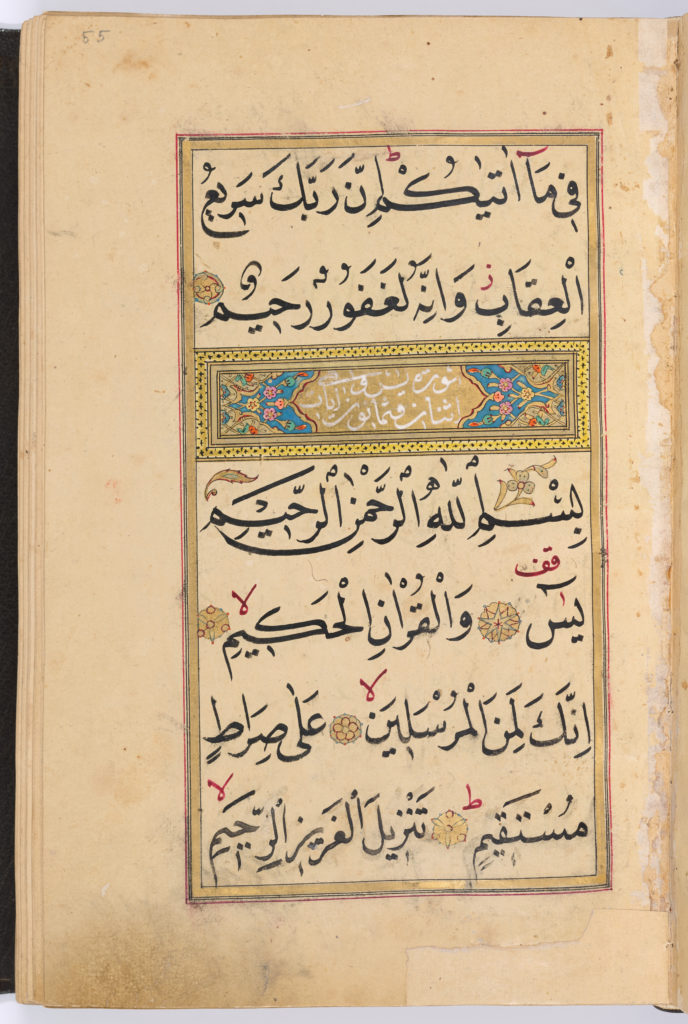 55
فِى مَآ اٰتٰيكُمْ ط اِنَّ رَبَّكَ سَرِيعُ
الْعِقَابِ ز وَاِنَّهُ لَغَفُورٌ رَحِيمٌ
سورة يس وهى
اثنان وثمانون ايات
بِسْمِ اللّٰهِ الرَّحْمٰنِ الرَّحِيمِ
يٰسٓ قف وَالْقُرْاٰنِ الْحَكِيمِ لا
اِنَّكَ لَمِنَ الْمُرْسَلِينَ لا عَلٰى صِرَاطٍ
مُسْتَقِيمٍ ط تَنْزِيلَ الْعَزِيزِ الرَّحِيمِ لا